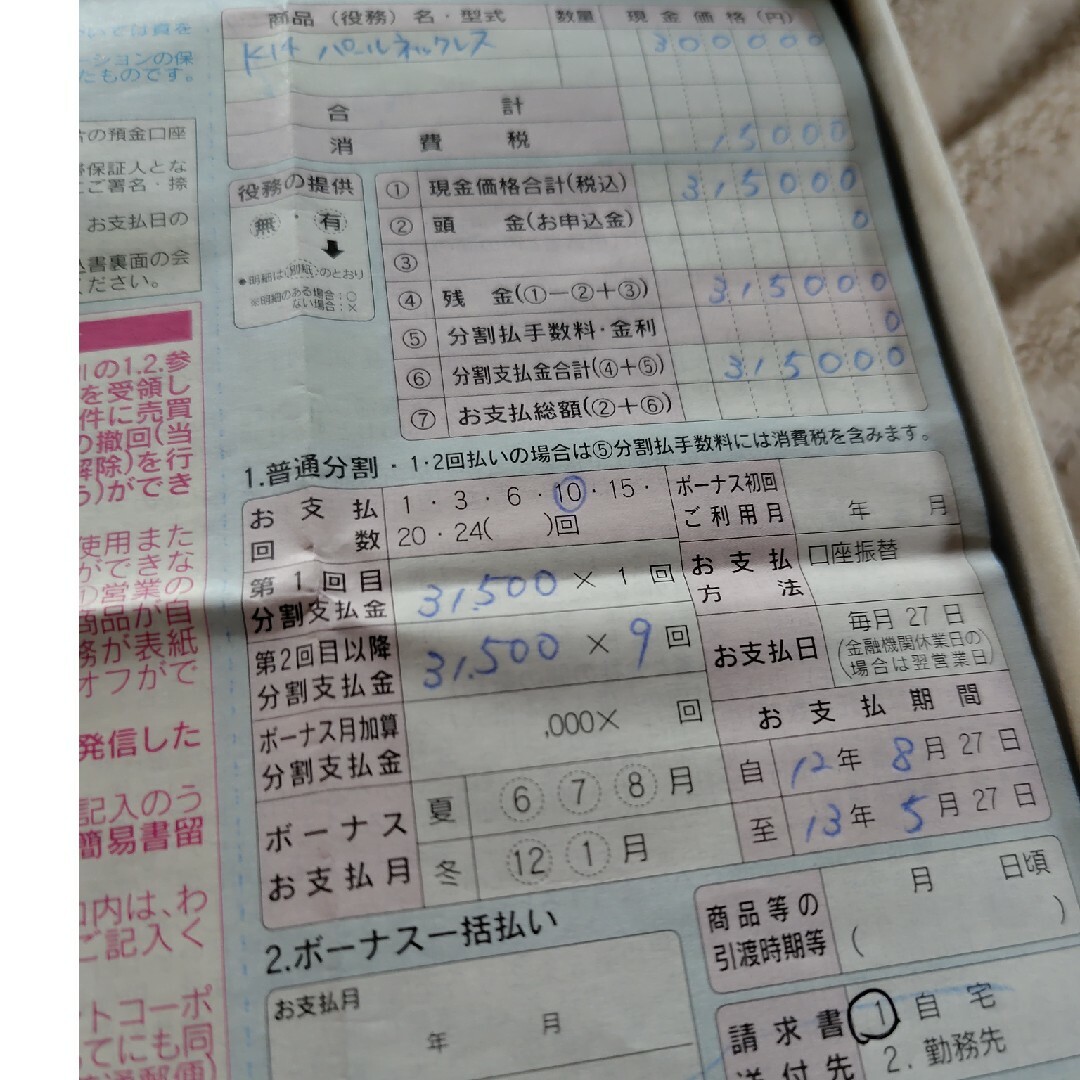 いては頁を
ーションの保
たものです。
合の預金口座
帯保証人とな
にご署名・捺
お支払日の
込書裏面の会
ください。
の1.2.参
を受領し
件に売買
の撤回(当
解除)を行
う)ができ
使用また
ができな
の営業の
商品が自
務が表紙
オフがで
発信した
記入のう
簡易書留
内は、わ
ご記入く
ントコーポ
てにも同
普通郵便)
商品(役務)名・型式 数量 現金価格(円)
K14 パールネックレス 300000
合計
消費税 15000
役務の提供
無・有
※明細は(別紙)のとおり
※明細のある場合:○
ない場合:×
① 現金価格合計(税込) 315000
② 頭金(お申込金) 0
③
④ 残金(①-②+③) 315000
⑤ 分割払手数料・金利 0
⑥ 分割支払金合計(④+⑤) 315000
⑦ お支払総額(②+⑥)
1.普通分割・1・2回払いの場合は⑤分割払手数料には消費税を含みます。
お支払回数 1・3・6・10・15・
20・24( )回
第1回目
分割支払金 31,500×1回
第2回目以降
分割支払金 31,500×9回
ボーナス月加算
分割支払金 ,000×回
ボーナス
お支払月
夏 ⑥ ⑦ ⑧月
冬 ⑫ ①月
ボーナス初回
ご利用月 年 月
お支払
方法 口座振替
お支払日 毎月27日
(金融機関休業日の
場合は翌営業日)
お支払期間
自 12年8月27日
至 13年5月27日
2.ボーナス一括払い
お支払月
年 月
商品等の
引渡時期等 月 日頃
( )
請求書
送付先
1.自宅
2.勤務先